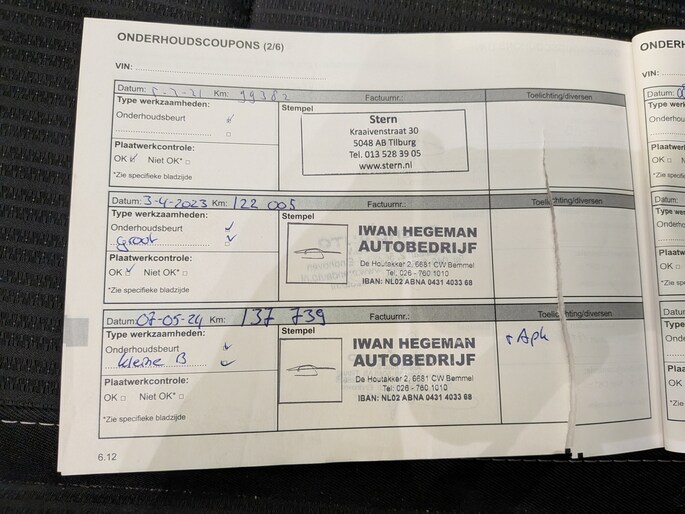 ONDERHOUDSCOUPONS (2/6)
VIN:
Datum: 5-7-21 Km: 99382 Factuurnr.: Toelichting/diversen
Type werkzaamheden: Stempel
Onderhoudsbeurt
Stern
Kraaivenstraat 30
5048 AB Tilburg
Tel. 013 528 39 05
www.stern.nl
Plaatwerkcontrole:
OK Niet OK*
*Zie specifieke bladzijde
Datum: 3-4-2023 Km: 122 005 Factuurnr.: Toelichting/diversen
Type werkzaamheden: Stempel
Onderhoudsbeurt
groot
IWAN HEGEMAN
AUTOBEDRIJF
De Houtakker 2, 6681 CW Bemmel
Tel. 026 - 760 1010
IBAN: NL02 ABNA 0431 4033 68
Plaatwerkcontrole:
OK Niet OK*
*Zie specifieke bladzijde
Datum: 07-05-24 Km: 137 739 Factuurnr.: Toelichting/diversen
Type werkzaamheden: Stempel
Onderhoudsbeurt
kleine B
IWAN HEGEMAN
AUTOBEDRIJF
De Houtakker 2, 6681 CW Bemmel
Tel: 026 - 760 1010
IBAN: NL02 ABNA 0431 4033 68
Apk
Plaatwerkcontrole:
OK Niet OK*
*Zie specifieke bladzijde
6.12
ONDERH
VIN:
Datum:
Type we
Onderhou
Plaatwe
OK
*Zie spec
Datum:
Type we
Onderho
Plaatwe
OK
*Zie spe